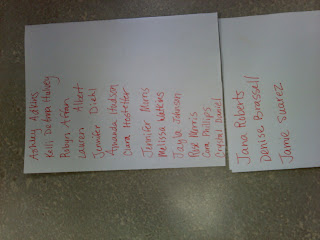 Ashley Adkins
Kelli DeBra Halvey
Robyn Affron
Lauren Albert
Jennifer Diehl
Amanda Hudson
Dana Hostetter
Jennifer Morris
Melissa Watkins
Jayla Johnson
Rose Harris
Cara Phillips
Crystal Daniel
Jana Roberts
Denise Brassell
Jamie Suarez